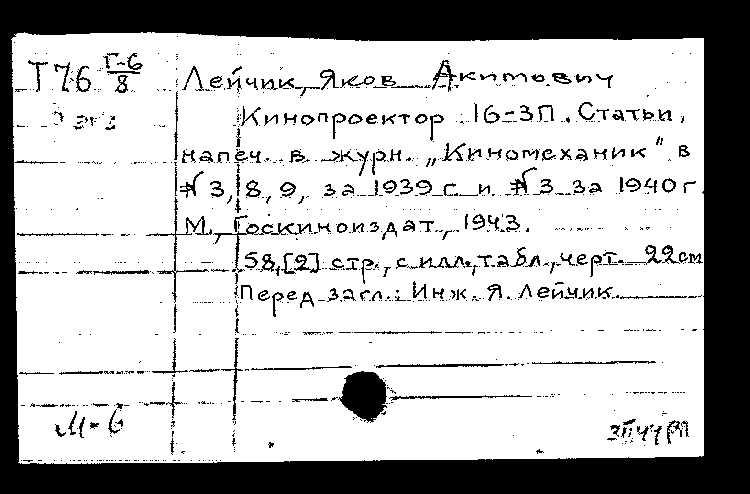 Т76 Г-6/8
Лейчик, Яков Акимович
Кинопроектор 16-ЗП. Статьи,
напеч. в журн. „Киномеханик" в
№ 3, 8, 9, за 1939 г. и № 3 за 1940 г.
М., Госкиноиздат, 1943.
58, [2] стр., с илл., табл., черт. 22 см
Перед загл.: Инж. Я. Лейчик.
М-6